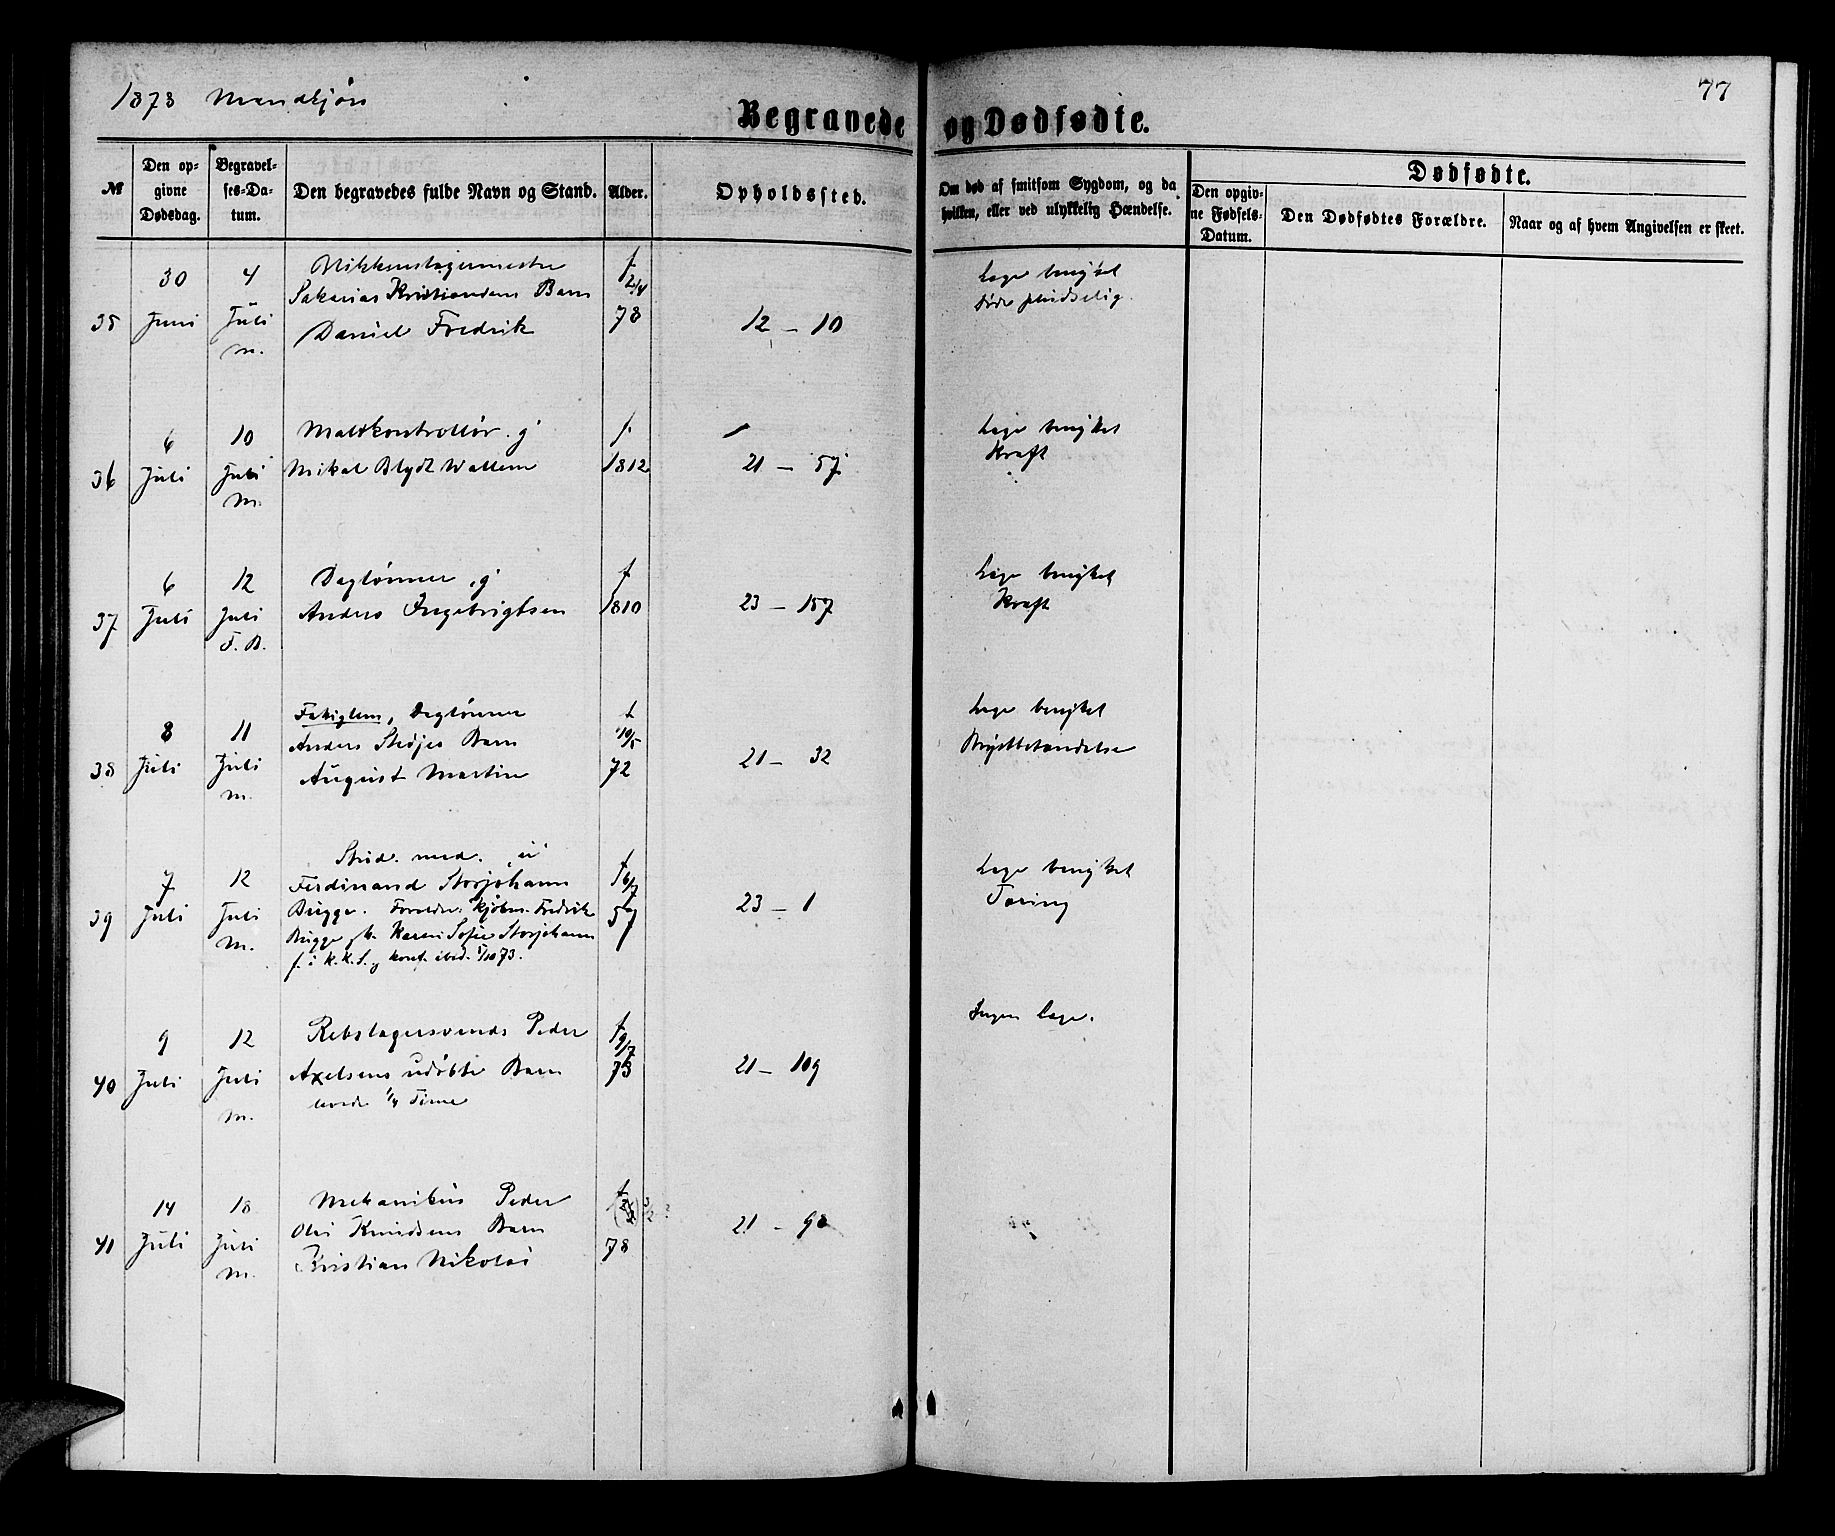 1878 Mandkjøn
77
Begravede og Dødfødte.
№
Den op-
givne
Dødsdag.
Begravel-
ses-Da-
tum.
Den begravedes fulde Navn og Stand.
Alder.
Opholdssted.
Om død af smitsom Sygdom, og da
hvilken, eller ved ulykkelig Hændelse.
Dødfødte.
Den opgiv-
ne Fødsels-
Datum.
Den Dødfødtes Forældre.
Naar og af hvem Angivelsen er skeet.
35
30
Juni
4
Juli
m.
Sakarias Kristiansens Barn
Daniel Fredrik
f
2/4
78
12 – 10
Læge benyttet
Døde pludselig.
36
6
Juli
10
Juli
m.
Maltkontrollør. g
Mikal Blydt Wallem
f.
1812
21 – 57
Læge benyttet
Kræft
37
6
Juli
12
Juli
F. B.
Daglønner, g
Anders Ingebrigtsen
f
1810
23 – 157
Læge benyttet
Kræft
38
8
Juli
11
Juli
m.
Fattiglem, Daglønner
Anders Barn
August Martin
f
10/5
72
21 – 32
Læge benyttet
Brystbetændelse
39
7
Juli
12
Juli
m.
Stud. med. u
Ferdinand Storjohann
Bugge. Foreldre: Kjøbm. Fredrik
Bugge, Karen Sofie Storjohann
f. i K. K. S. konf. ibid. 5/10 73.
f
16/7
57
23 – 1
Læge benyttet
Tæring
40
9
Juli
12
Juli
m.
Rebslagersvends Peder
Axelsens udøbte Barn
levede 1/4 Time
f
9/7
78
21 – 109
Ingen Læge.
41
14
Juli
18
Juli
m.
Mekanikus Peder
Olai Knudsens Barn
Kristian Nikolai
f
78
21 – 98